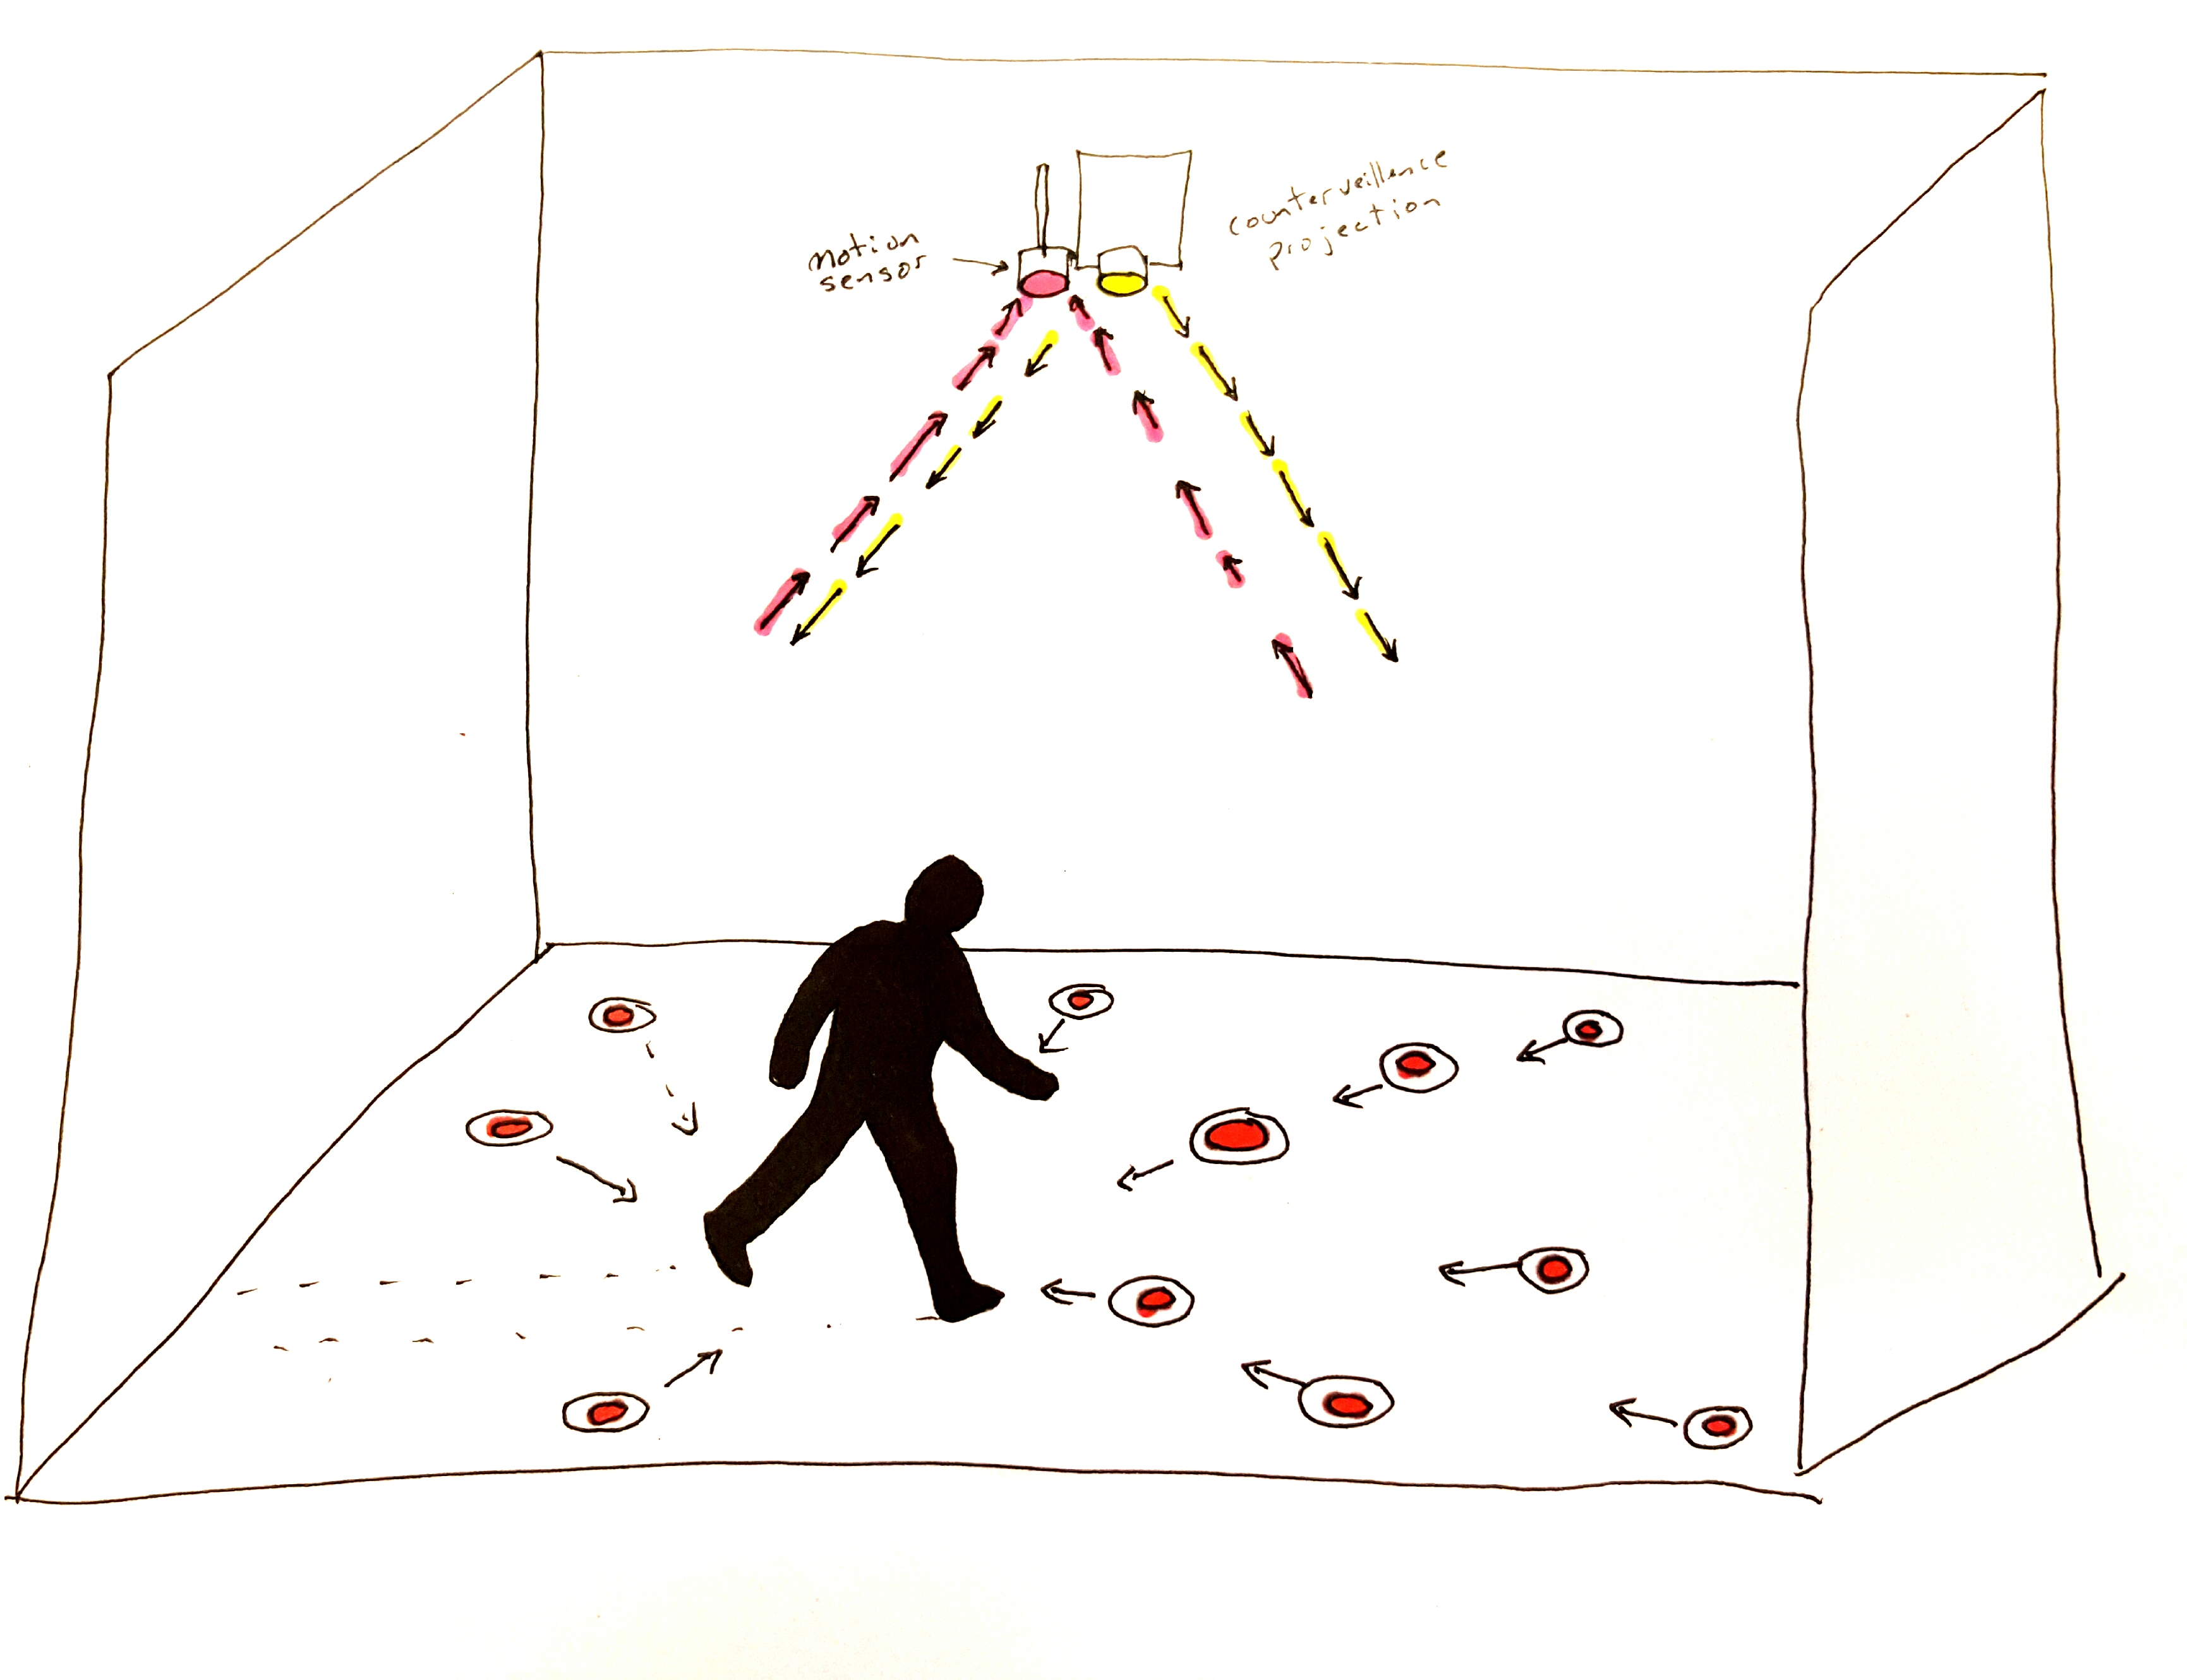 motion
sensor
counterveillence
projection